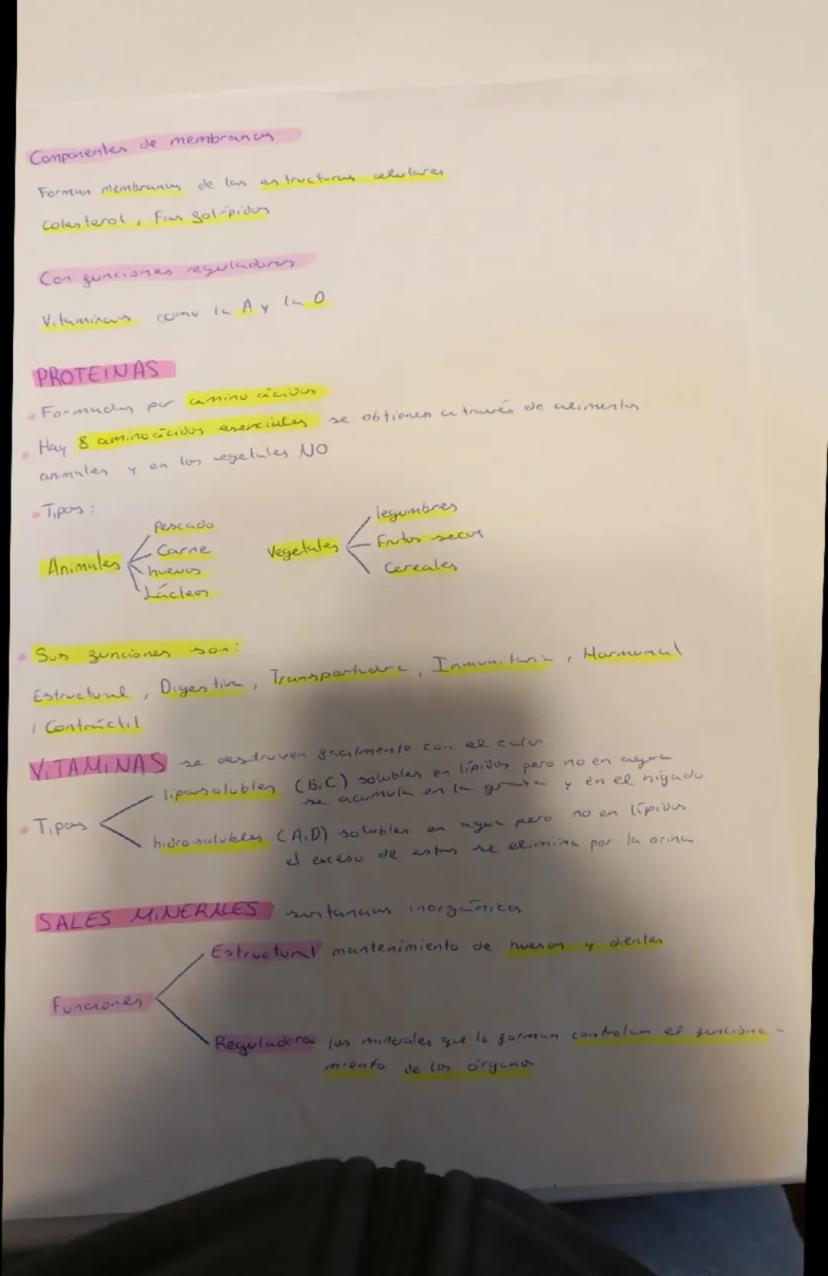 Componentes de membranas
Forman membranas de las estructuras celulares
colesterol, Fosfolípidos
Con funciones reguladoras
Vitaminas como la A y la D
PROTEINAS
• Formadas por aminoácidos
• Hay 8 aminoácidos esenciales se obtienen a través de alimentos
animales y en los vegetales NO
• Tipos:
Animales
Pescado
Carne
huevos
Lácteos
Vegetales
legumbres
Frutos secos
Cereales
• Sus funciones son:
Estructural, Digestiva, Transportadora, Inmunitaria, Hormonal
, Contráctil
VITAMINAS se destruyen facilmente con el calor
• Tipos
liposolubles (B,C) solubles en lípidos pero no en agua
se acumula en la grasa y en el hígado
hidrosolubles (A,D) solubles en agua pero no en lípidos
el exceso de estas se elimina por la orina
SALES MINERALES sustancias inorgánicas
Funciones
Estructural mantenimiento de huesos y dientes
Reguladora los minerales que lo forman controlan el funciona-
miento de los órganos